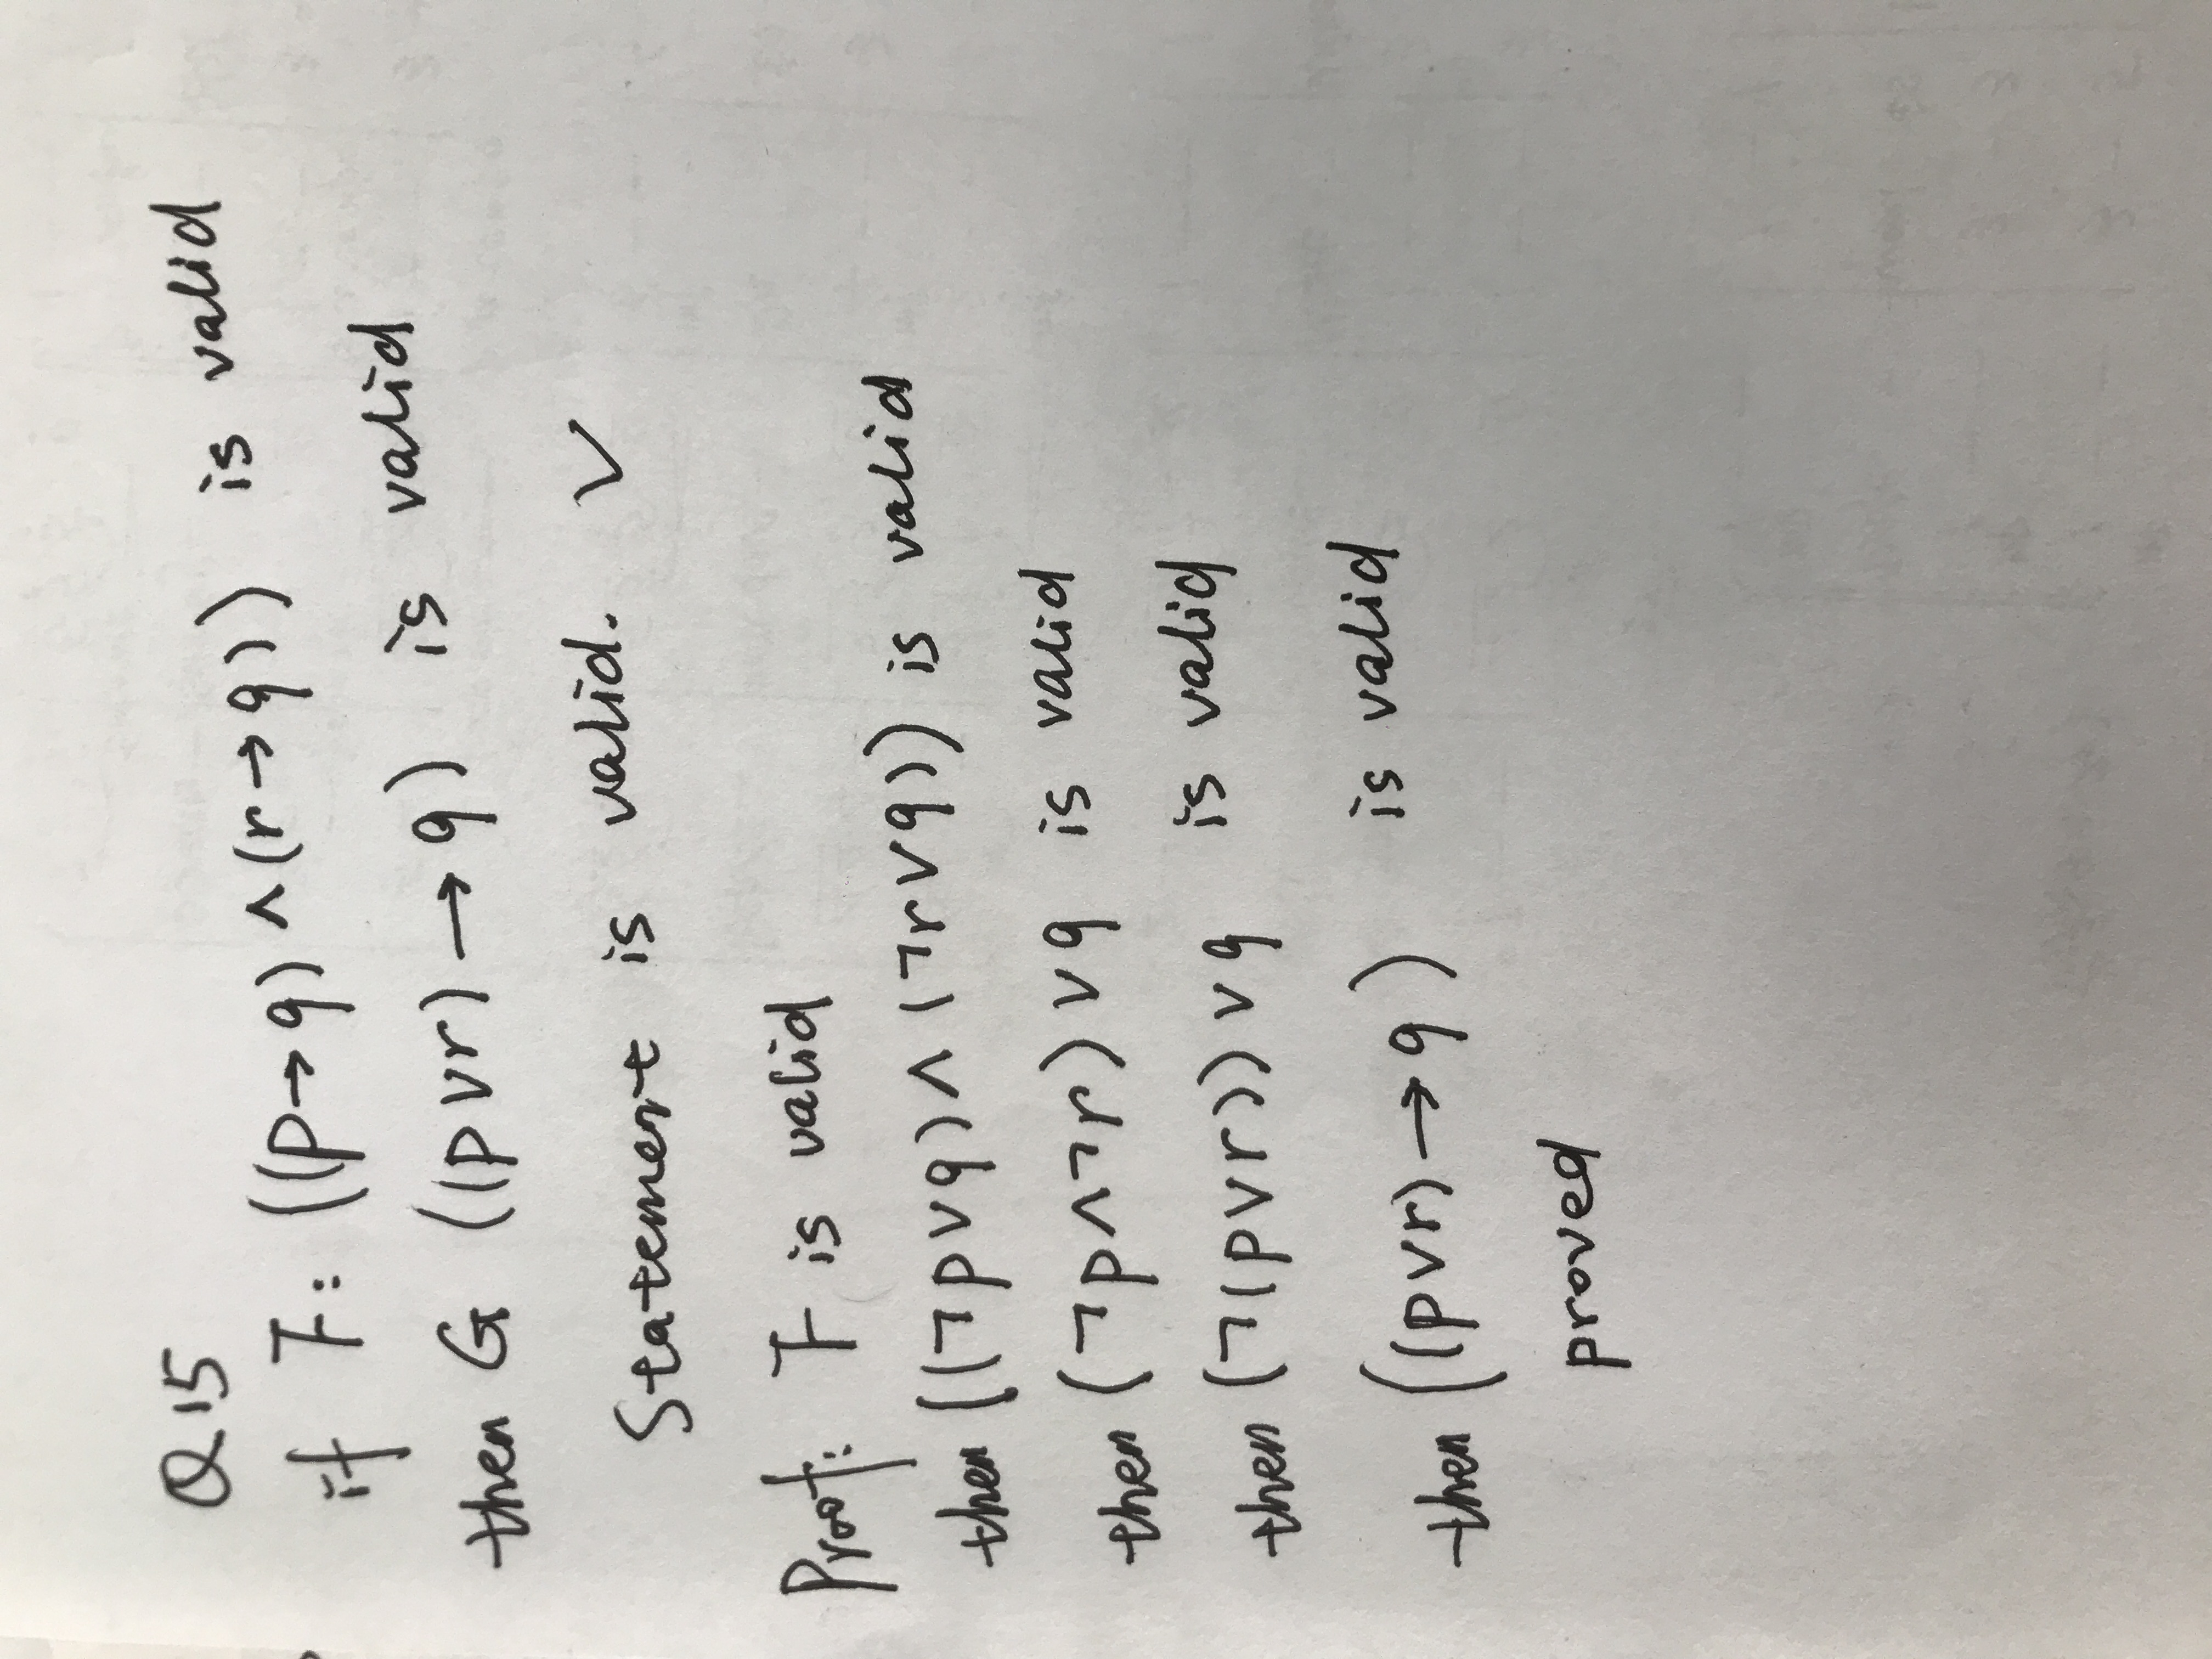 Q15
if F: ((p→q)∧(r→q)) is valid
then G ((p∨r)→q) is valid
Statement is valid. √
Proof: F is valid
then ((¬p∨q)∧(¬r∨q)) is valid
then (¬p∧¬r)∨q is valid
then (¬(p∨r))∨q is valid
then ((p∨r)→q) is valid
proved